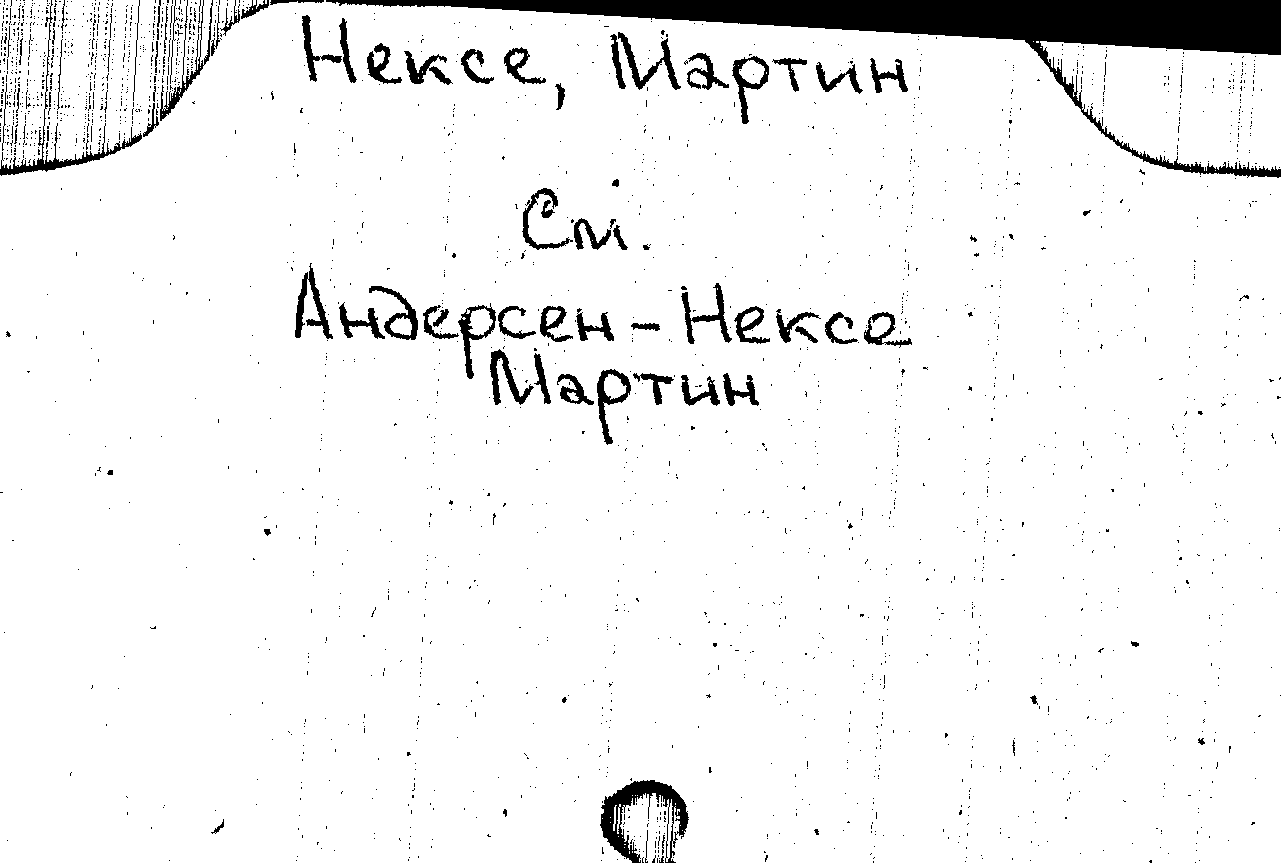 Нексе, Мартин
См.
Андерсен - Нексе
Мартин